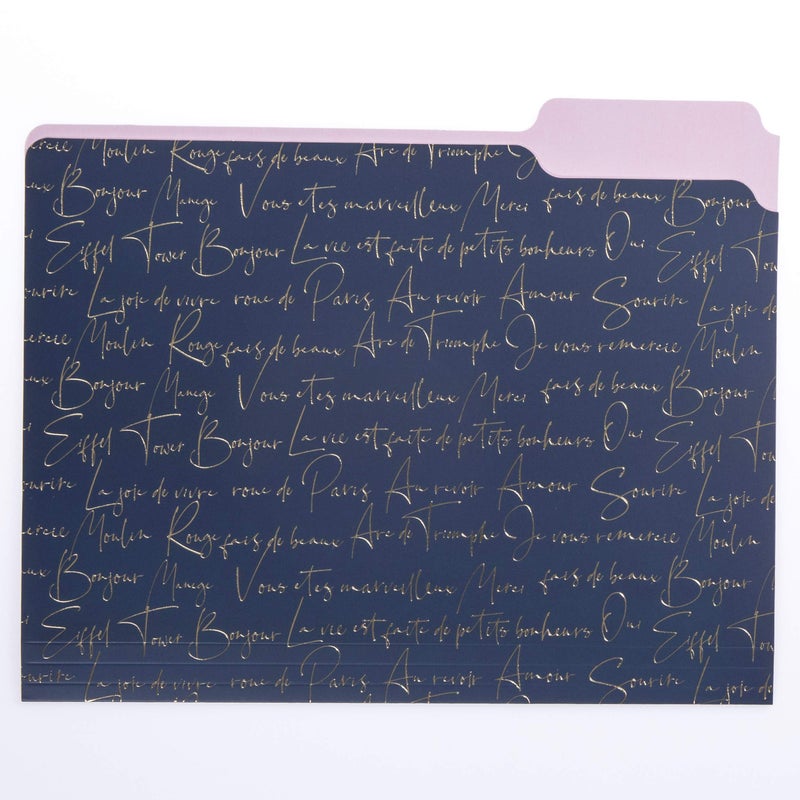 rcie Moulin Rouge fais de beaux Arc de Triomphe J
ux Bonjour Manege Vous etes marveilleux Merci fais de beaux Bonjour
i Eiffel Tower Bonjour La vie est faite de petits bonheurs Oui Eiffel To
ourire La joie de vivre roue de Paris Au revoir Amour Sourire La joie de
emercie Moulin Rouge fais de beaux Arc de Triomphe Je vous remercie Moulin
ux Bonjour Manege Vous etes marveilleux Merci fais de beaux Bonjour
i Eiffel Tower Bonjour La vie est faite de petits bonheurs Oui Eiffel Tow
ourire La joie de vivre roue de Paris Au revoir Amour Sourire La joie de
mercie Moulin Rouge fais de beaux Arc de Triomphe Je vous remercie Moulin
ux Bonjour Manege Vous etes marveilleux Merci fais de beaux Bonjour
i Eiffel Tower Bonjour La vie est faite de petits bonheurs Oui Eiffel Tow
urire La joie de vivre roue de Paris Au revoir Amour Sourire La joie de